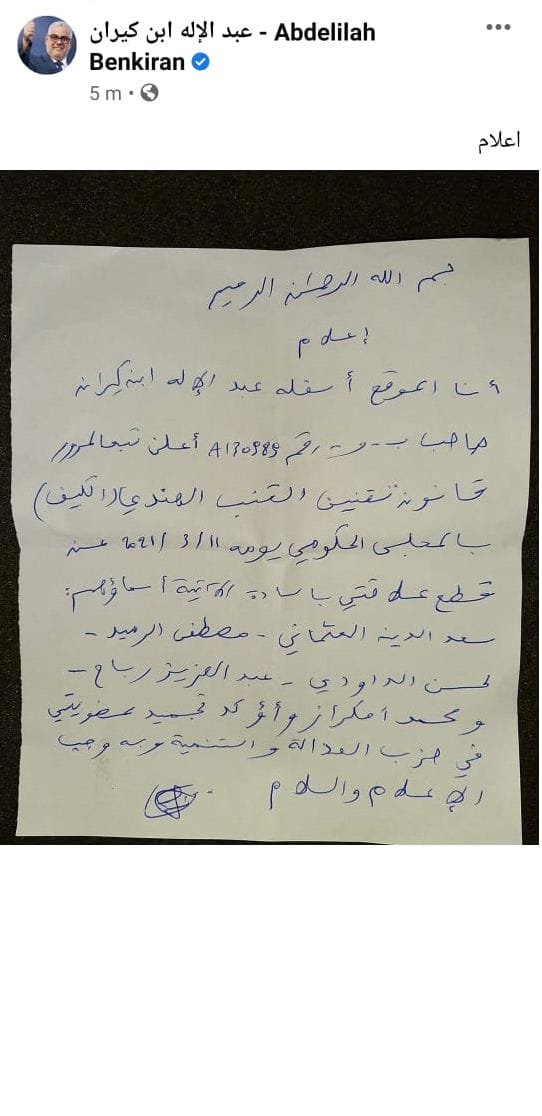 عبد الإله ابن كيران - Abdelilah
Benkiran
5 m
اعلام
بسم الله الرحمان الرحيم
إعلام
أنا الموقع أسفله عبد الإله ابن كيران
صاحب ب-و- رقم A130989 أعلن تبعا لمرور
قانون تقنين القنب الهندي (الكيف)
بالمجلس الحكومي يومه 11/3/2021 عن
قطع علاقتي بالسادة الآتية أسماؤهم:
سعد الدين العثماني - مصطفى الرميد -
لحسن الداودي - عبد العزيز رباح -
و محمد أمكراز وأؤكد تجميد عضويتي
في حزب العدالة والتنمية وبه وجب
الإعلام والسلام